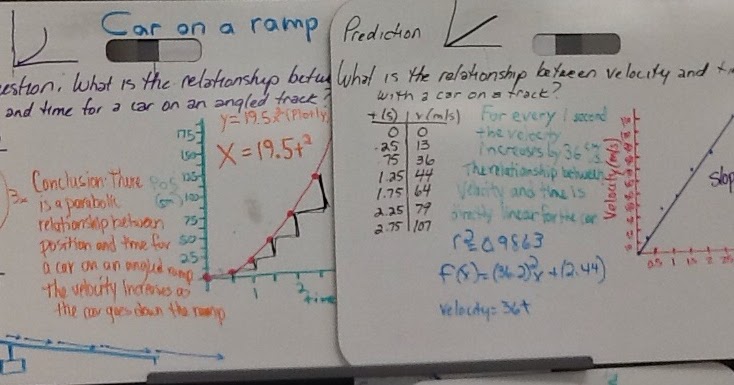 Car on a ramp
What is the relationship betw
and time for a car on an angled track?
y=19.5x²(Plotly
X=19.5t²
175
150
125
100
75
50
25
Pos
(cm)
1
2
time
3.
Conclusion: There
is a parabolic
relationship between
position and time for
a car on an angled ramp
The velocity increases as
the car goes down the ramp
Prediction
What is the relationship between velocity and ti
with a car on a track?
t(s) v(m/s)
0 0
.25 13
.75 36
1.25 44
1.75 64
2.25 79
2.75 107
For every 1 second
the velocity
increases by 36
The relationship between
velocity and time is
directly linear for the car
r²=0.9863
velocity=36t
Velocity(m/s)
0.5 1 1.5 2 2.5
Slop